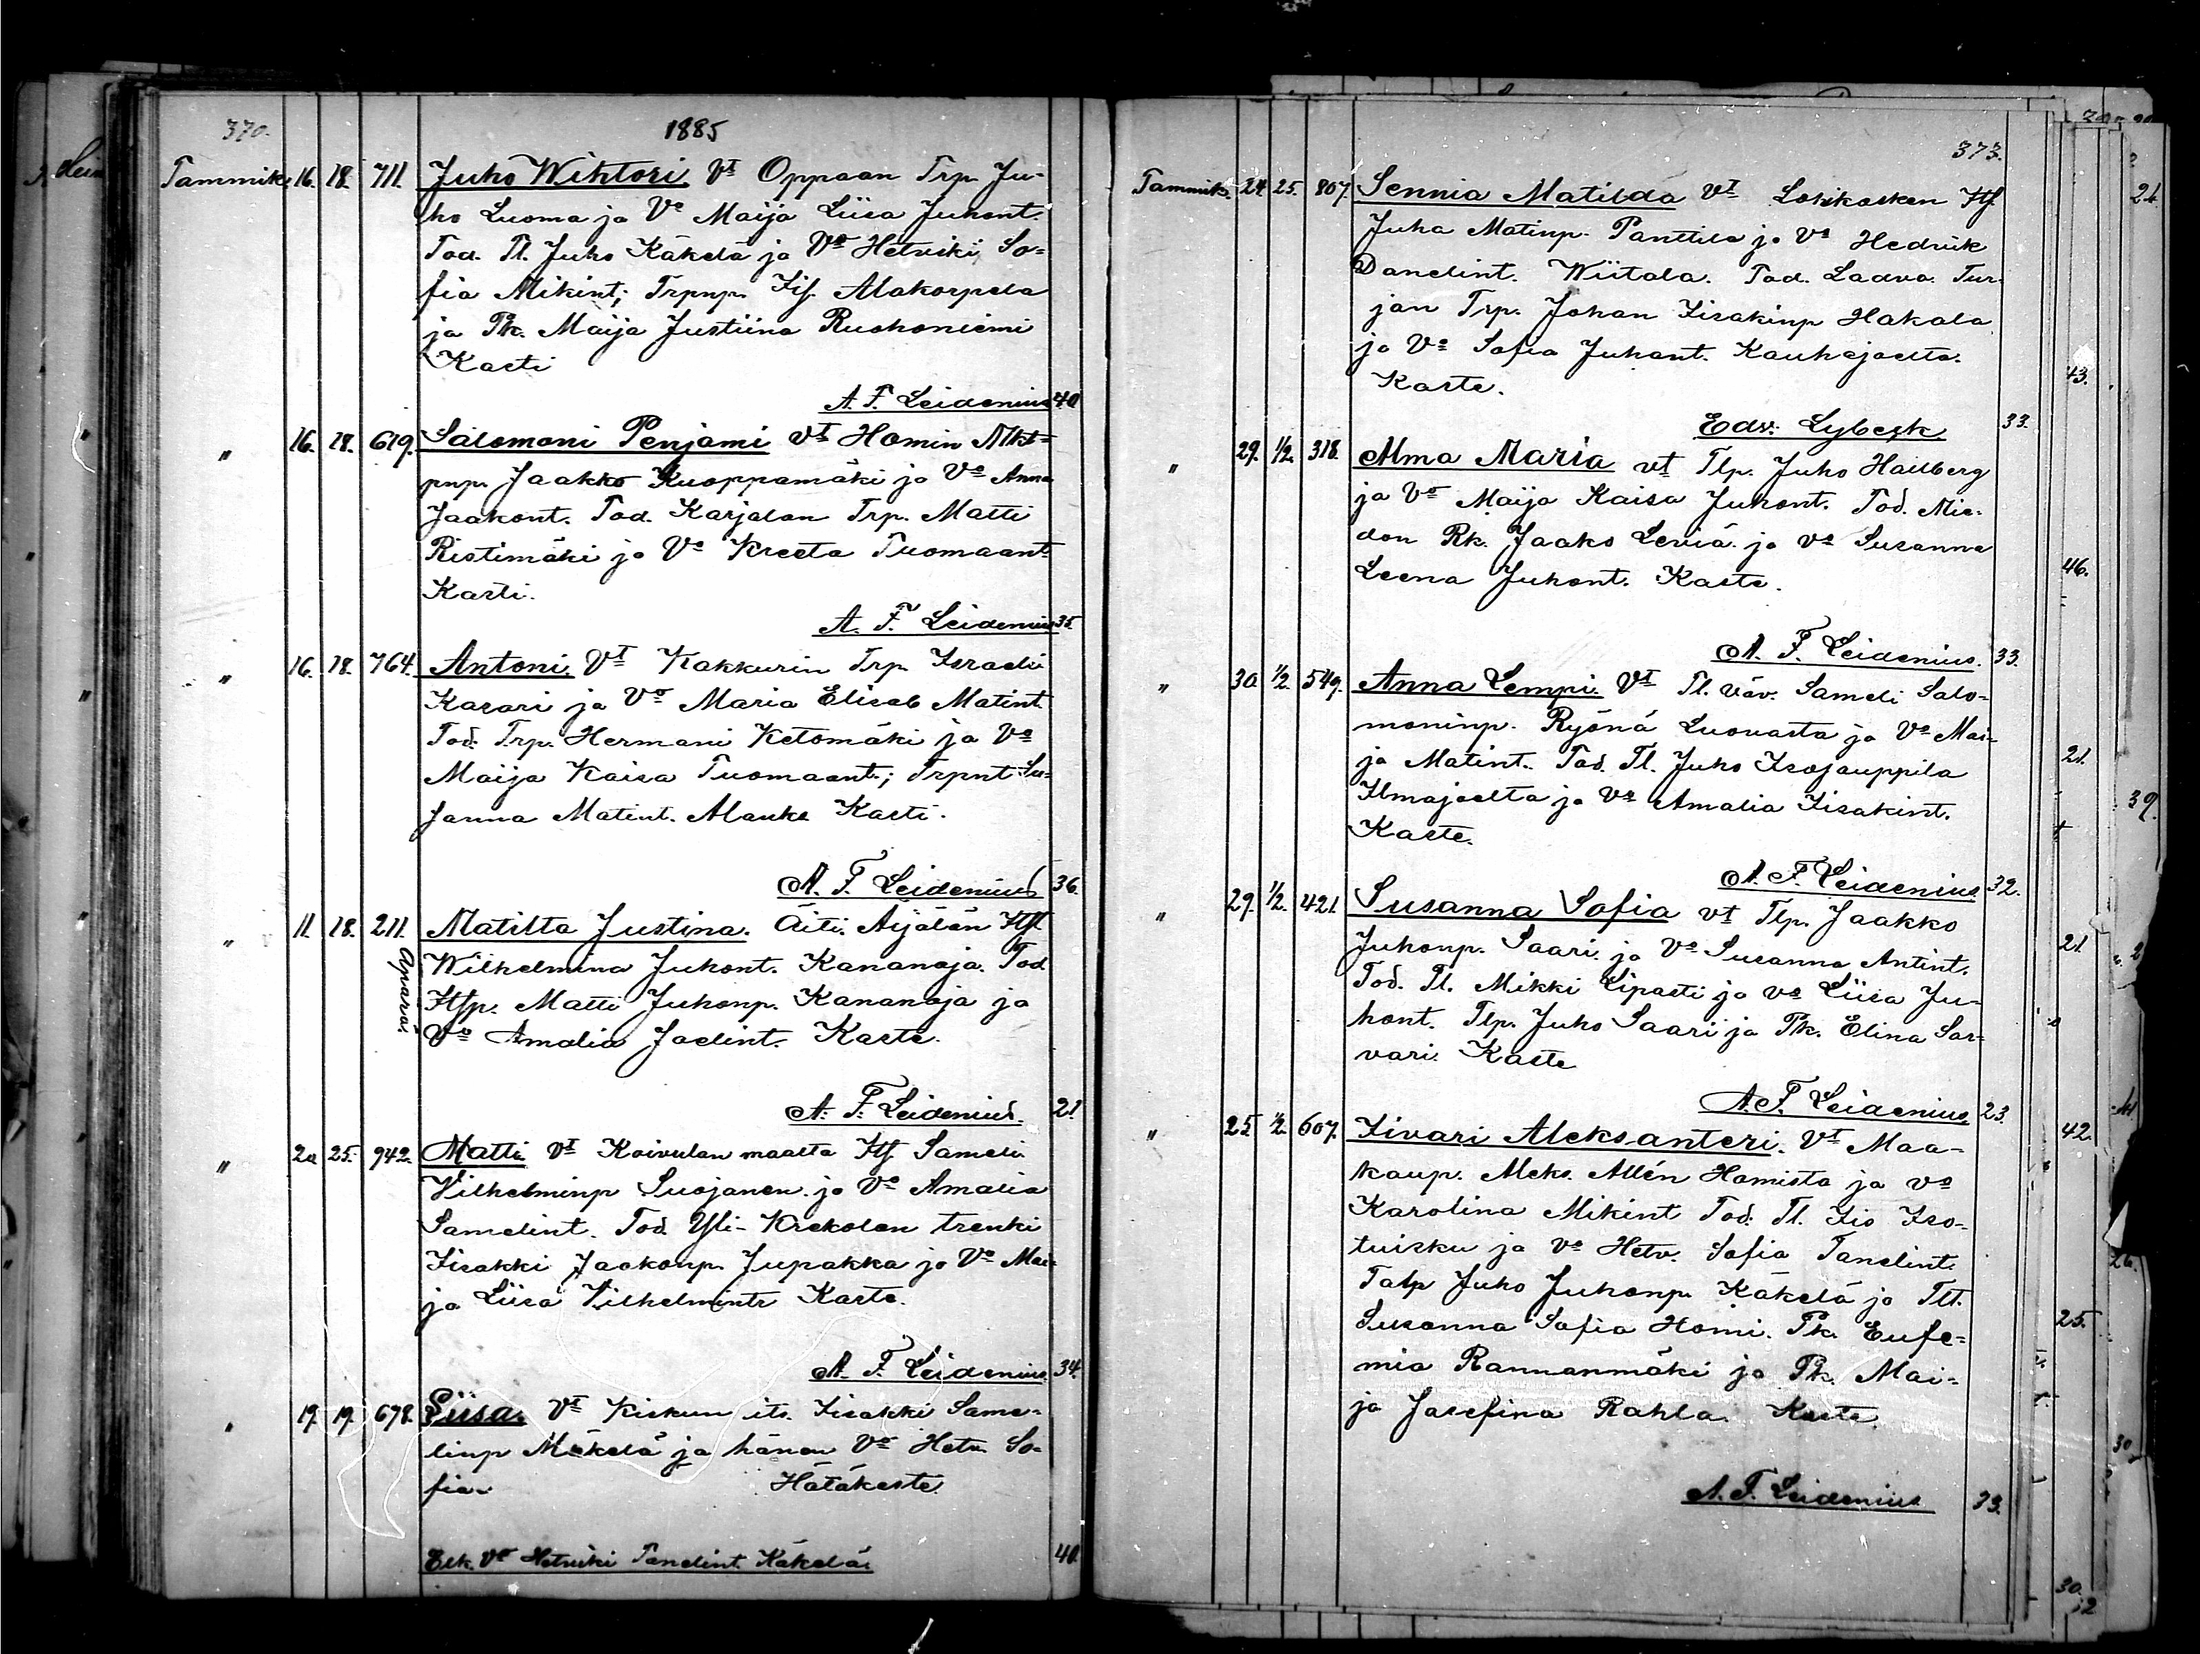 370.
1885
Tammik. 16. 18. 711. Juho Wihtori Vt Oppaan Trp. Ju-
ho Luoma ja Vo Maija Liisa Juhont.
Tod. Tl. Juho Käkelä ja Vo Hetviki So-
fia Mikint; Trpnp. Iis. Alakorpela
ja Pk. Maija Justiina Ruohoniemi
Kasti
A. F. Leidenius 40
" 16. 18. 619. Salomoni Penjami Vt Homin Mkt-
pnp. Jaakko Kuoppamäki ja Vo Anna
Jaakont. Tod. Karjalan Trp. Matti
Ristimäki ja Vo Kreeta Tuomaant.
Kasti.
A. F. Leidenius 35
" 16. 18. 764. Antoni. Vt Kakkurin Trp. Israeli
Kasari ja Vo Maria Elisab Matint.
Tod. Trp. Hermani Ketomäki ja Vo
Maija Kaisa Tuomaant.; Trpnt Su-
sanna Matint. Alanko Kasti.
A. F. Leidenius 36.
" 11. 18. 211. Matilta Justina. Äiti. Äijälän Itst
Äpäräi
Wilhelmina Juhont. Kananoja. Tod
Itsp. Matti Juhonp. Kananoja ja
Vo Amalia Joelint. Kaste.
A. F. Leidenius. 21
" 20 25. 942. Matti Vt Koivulan maalta Its. Sameli
Vilhelminp Suojanen. ja Vo Amalia
Samelint. Tod. Yli-Krekolan trenki
Iisakki Jaakonp. Jupakka ja Vo Mai-
ja Liisa Vilhelmintr Kaste.
A. F. Leidenius. 34.
" 19. 19. 678. Liisa. Vt Kiskun its. Iisakki Same-
linp Mäkelä ja hänen Vo Hetv. So-
fia. Hätäkaste.
Esk. Vo Hetviki Tanelint. Käkelä. 40.
373.
Tammik. 24. 25. 807. Sennia Matilda Vt Loskkosken Its.
Juha Matinp. Panttila ja Vo Hedvik
Danelint. Wiitala. Tod. Ladva. Tur-
jan Trp. Johan Iisakinp Hakala
ja Vo Sofia Juhant. Kauhajoelta.
Kaste.
Edv. Lybeck. 33.
" 29. 1/2. 318. Alma Maria vt Tlp. Juho Hallberg
ja Vo Maija Kaisa Juhont. Tod. Mie-
don Rk. Jaako Leviä. ja vo Susanna
Leena Juhont. Kaste.
A. F. Leidenius. 33.
" 30. 1/2. 549. Anna Lempi. Vt Tl. väv. Sameli Salo-
moninp. Ryönä Luovasta ja Vo Mai-
ja Matint. Tod. Tl. Juho Isojauppila
Ilmajoelta ja Vo Amalia Iisakint.
Kaste.
A. F. Leidenius 32.
" 29. 1/2. 421. Susanna Sofia vt Tlp. Jaakko
Juhonp. Saari. ja Vo Susanna Antint.
Tod. Tl. Mikki Lipasti ja vo Liisa Ju-
hont. Tlp. Juho Saari ja Pk. Elina Sar-
vari. Kaste
A. F. Leidenius. 23
" 25. 1/2. 607. Iivari Aleksanteri. Vt Maa-
kaup. Aleks. Allén Homista ja vo
Karolina Mikint Tod. Tl. Iio Iso-
tuisku ja vo Hetv. Sofia Tanelint.
Talp Juho Juhonp. Käkelä ja Tlt.
Susanna Sofia Homi. Pk. Eufe-
mia Rannanmäki ja Pk. Mai-
ja Josefina Rahla. Kaste.
A. F. Leidenius 33.
21.
43.
46.
21.
39.
21
42.
26.
25.
30
30.
12